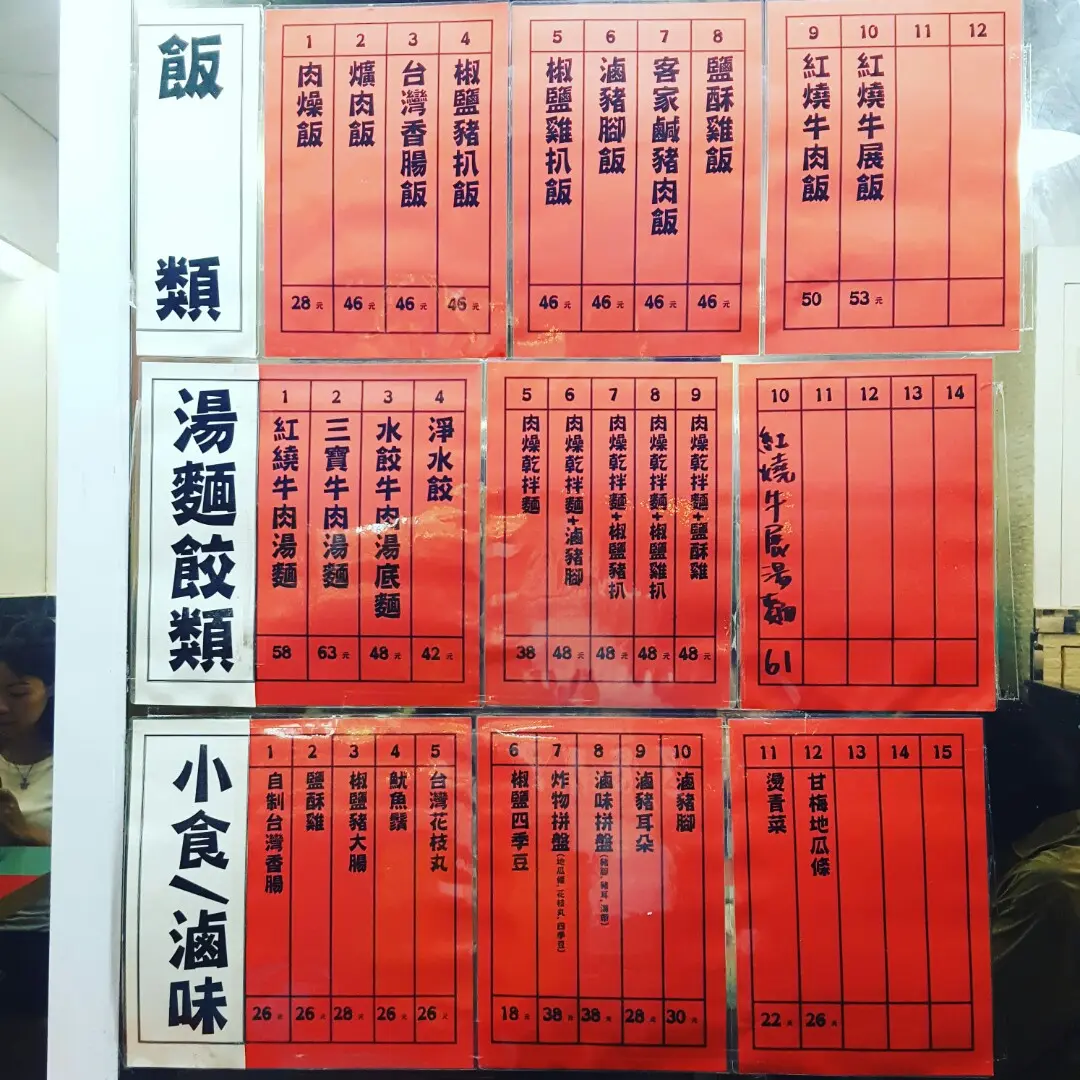 飯類
1
肉燥飯
28元
2
爌肉飯
46元
3
台灣香腸飯
46元
4
椒鹽豬扒飯
46元
5
椒鹽雞扒飯
46元
6
滷豬腳飯
46元
7
客家鹹豬肉飯
46元
8
鹽酥雞飯
46元
9
紅燒牛肉飯
50
10
紅燒牛展飯
53元
11
12
湯麵餃類
1
紅繞牛肉湯麵
58
2
三寶牛肉湯麵
63元
3
水餃牛肉湯底麵
48元
4
淨水餃
42元
5
肉燥乾拌麵
38
6
肉燥乾拌麵+滷豬腳
48元
7
肉燥乾拌麵+椒鹽豬扒
48元
8
肉燥乾拌麵+椒鹽雞扒
48元
9
肉燥乾拌麵+鹽酥雞
48元
10
紅燒牛展湯麵
61
11
12
13
14
小食/滷味
1
自制台灣香腸
26元
2
鹽酥雞
26元
3
椒鹽豬大腸
28元
4
魷魚鬚
26元
5
台灣花枝丸
26元
6
椒鹽四季豆
18元
7
炸物拼盤(地瓜條,花枝丸,四季豆)
38元
8
滷味拼盤(豬腳,豬耳,滷)
38元
9
滷豬耳朵
28元
10
滷豬腳
30元
11
燙青菜
22元
12
甘梅地瓜條
26元
13
14
15